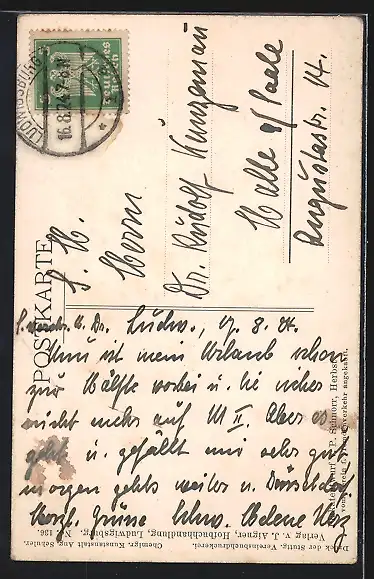 POSTKARTE
LUDWIGSBURG
16.8.24. 7-8 N
Deutsches Reich
S. H.
Herrn
Dr. Rudolf Kunzemann
Halle a/Saale
Augustastr. 14.
Ludw., 17. 8. 24.
Nun ist mein Urlaub schon
zur Hälfte vorbei u. Sie
nicht mehr auf M II. Aber es
geht u. gefällt mir sehr gut,
morgen gehts weiter n. Düsseldorf
Herzl. Grüsse Schw. Helene Herz
Druck der Stuttg. Vereinsbuchdruckerei. Chemigr. Kunstanstalt Aug. Schuler.
Verlag v. J. Aigner, Hofbuchhandlung, Ludwigsburg. No. 136.
P. Schnorr, Herbst